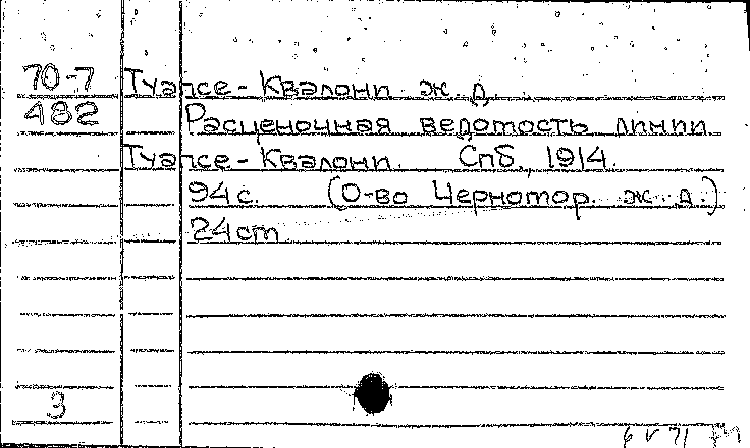 70-7 Туапсе - Квалони. ж. д.
482 Расценочная ведомость линии
Туапсе - Квалони. Спб., 1914.
94 с. (О-во Черномор. ж. д.)
24 см
3
6 V 71